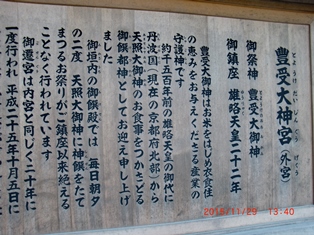 とようけだいじんぐう げくう
豊受大神宮(外宮)
御祭神 豊受大御神
御鎮座 雄略天皇二十二年
豊受大御神はお米をはじめ衣食住
の恵みをお与えくださる産業の
守護神です
約千五百年前の雄略天皇の御代に
丹波国(現在の京都府北部)から
天照大御神のお食事をつかさどる
御饌都神としてお迎え申し上げ
ました
御垣内の御饌殿では 毎日朝夕
の二度 天照大御神に神饌をたて
まつるお祭りがご鎮座以来絶える
ことなく行われています
御遷宮は内宮と同じく二十年に
一度行われ 平成二十五年十月五日に
2015/11/29 13:40